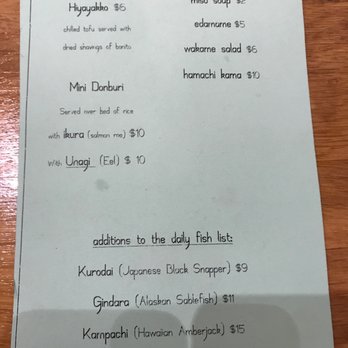 Hiyayakko $6
chilled tofu served with
dried shavings of bonito
miso soup $2
edamame $5
wakame salad $6
hamachi kama $10
Mini Donburi
Served over bed of rice
with ikura (salmon roe) $10
with Unagi (Eel) $ 10
additions to the daily fish list:
Kurodai (Japanese Black Snapper) $9
Gindara (Alaskan Sablefish) $11
Kampachi (Hawaiian Amberjack) $15